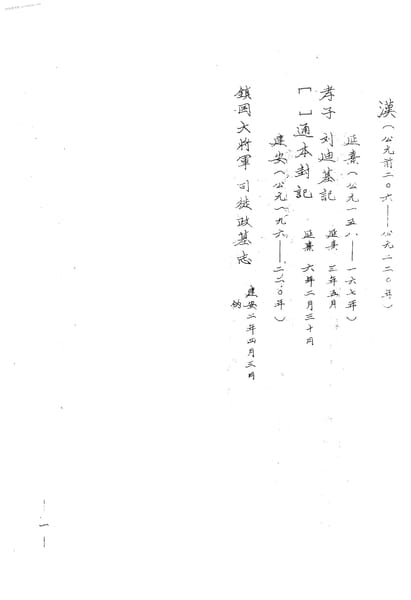 漢(公元前二〇六——公元二二〇年)
延熹(公元一五八——一六七年)
孝子刘迪墓記 延熹三年五月
[ ]通本封記 延熹六年二月三十日
建安(公元一九六——二二〇年)
鎮国大将軍司徒政墓志 建安二年四月三日
伪
—一—